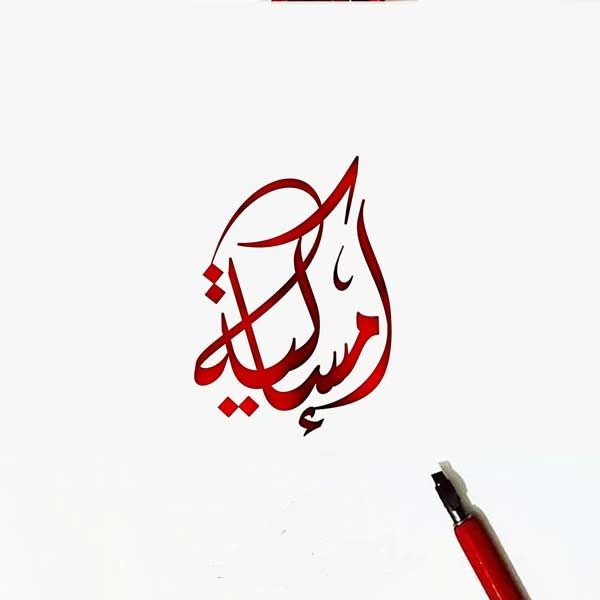 إمساكية